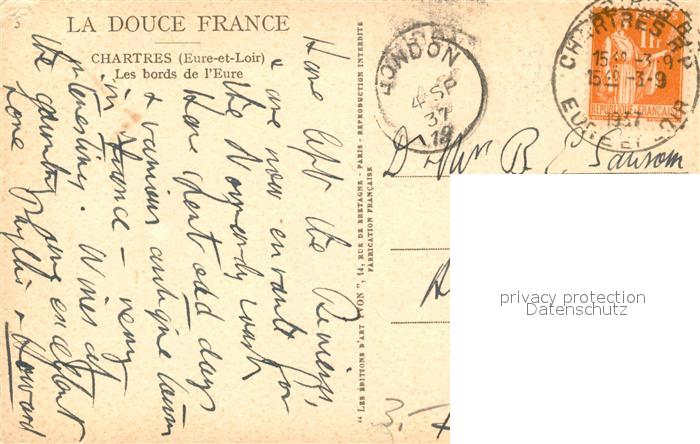 LA DOUCE FRANCE
CHARTRES (Eure-et-Loir)
Les bords de l'Eure
Have left the
& are now en route for
the Normandy coast.
Have spent odd days
& various antique towns
in France – very
interesting. Wines of
the country very excellent
Love Phyllis & Howard
"LES ÉDITIONS D'ART YVON", 14, RUE DE BRETAGNE - PARIS - REPRODUCTION INTERDITE
FABRICATION FRANÇAISE
LONDON
4 SP
37
12
CHARTRES R.P.
15 40 -3.-9
15 40 -3-9
1937
EURE ET LOIR
1F
REPUBLIQUE FRANÇAISE
Mrs B. Sansom
privacy protection
Datenschutz